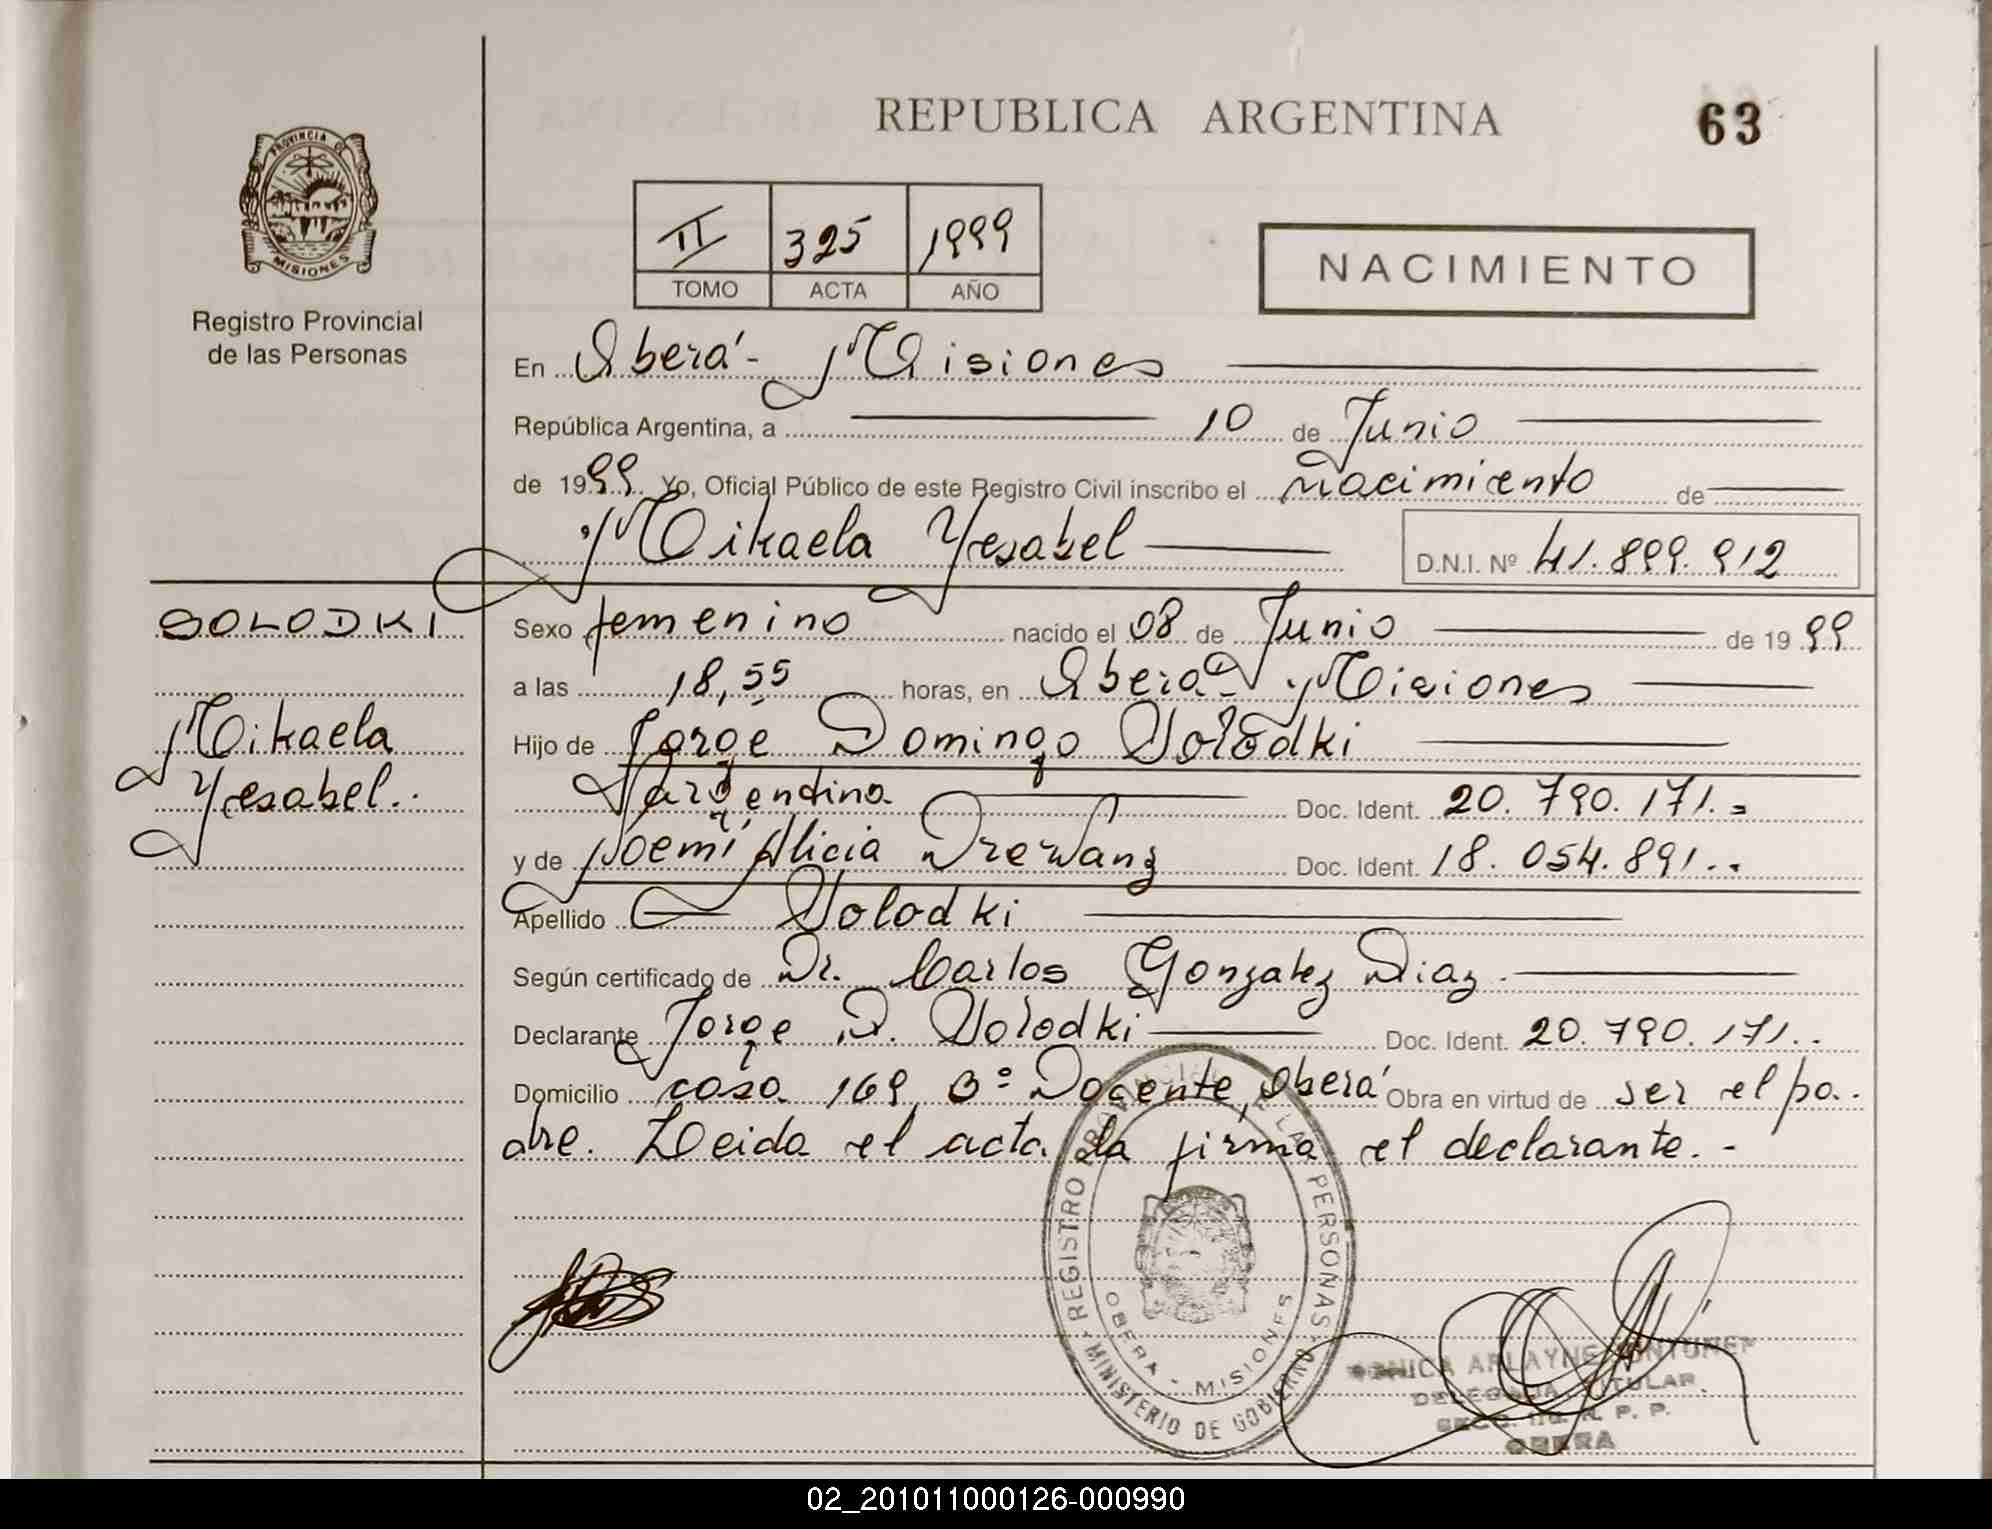 REPUBLICA ARGENTINA
63
PROVINCIA DE
MISIONES
Registro Provincial
de las Personas
II 325 1999
TOMO ACTA AÑO
NACIMIENTO
En Oberá - Misiones
República Argentina, a 10 de Junio
de 1999 Yo, Oficial Público de este Registro Civil inscribo el nacimiento de
Mikaela Yesabel
D.N.I. Nº 41.899.912
SOLODKI
Mikaela
Yesabel.
Sexo femenino nacido el 08 de Junio de 1999
a las 18,55 horas, en Oberá - Misiones
Hijo de Jorge Domingo Solodki
Argentina Doc. Ident. 20.790.171.-
y de Noemí Alicia Drewanz Doc. Ident. 18.054.891.-
Apellido Solodki
Según certificado de Dr. Carlos Gonzalez Diaz.
Declarante Jorge D. Solodki Doc. Ident. 20.790.171..
Domicilio casa 169 Bº Docente, Oberá Obra en virtud de ser el pa..
dre. Leida el acta la firma el declarante.-
REGISTRO PROVINCIAL DE LAS PERSONAS
OBERA - MISIONES
MINISTERIO DE GOBIERNO
ARLAYNE
DELEGADA TITULAR
R. P. P.
OBERA
02_201011000126-000990